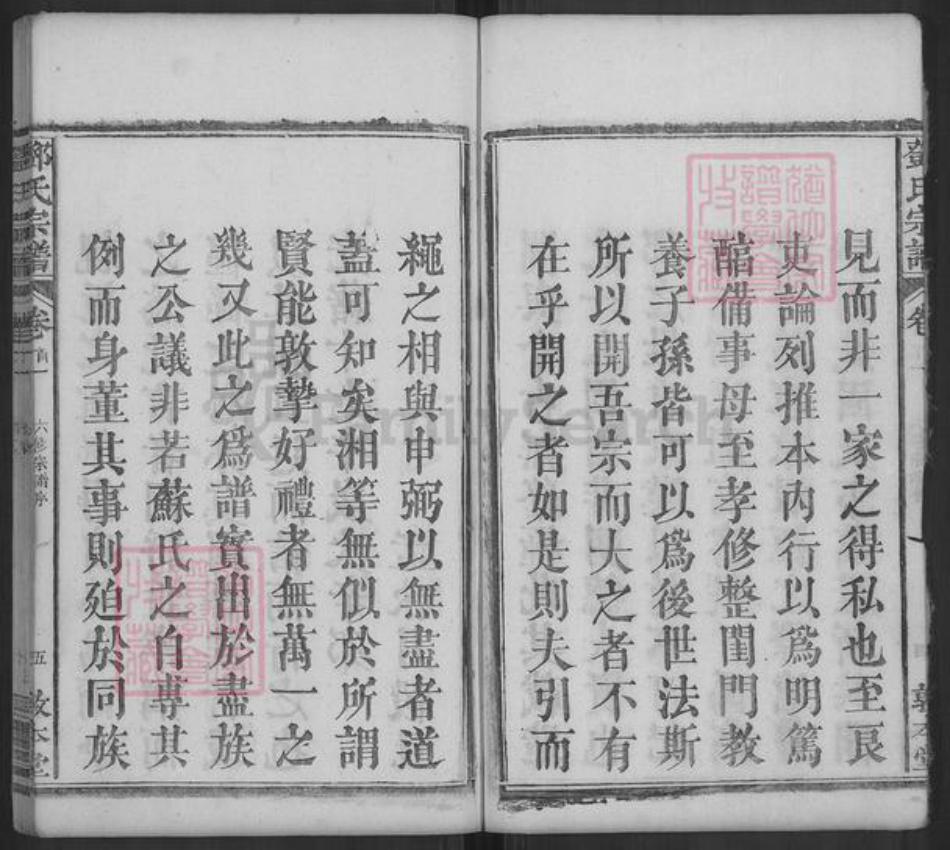 見而非一家之得私也至艮
吏論列推本內行以爲明篤
醕備事母至孝修整閨門教
養子孫皆可以爲後世法斯
所以開吾宗而大之者不有
在乎開之者如是則夫引而
繩之相與申弼以無盡者道
蓋可知矣湘等無似於所謂
賢能敦摯好禮者無萬一之
幾又此之爲譜實出於盡族
之公議非若蘇氏之自專其
例而身董其事則廹於同族
鄧氏宗譜
卷首
六修宗譜序
五
敦本堂
FamilySearch